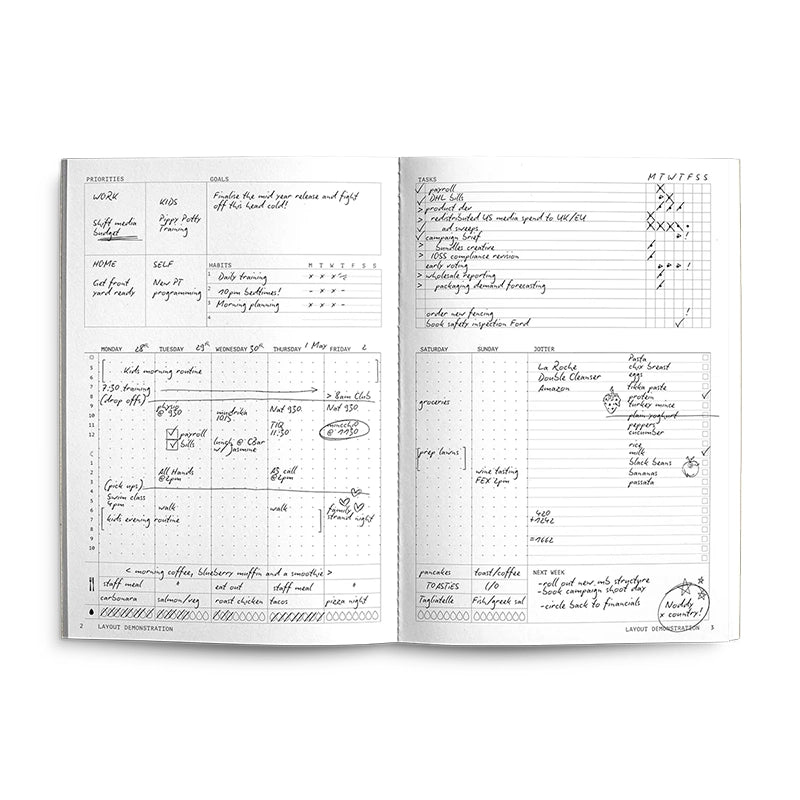 PRIORITIES
WORK
Shift media
budget
KIDS
Pippy Potty
Training
HOME
Get front
yard ready
SELF
New PT
programming
GOALS
Finalise the mid year release and fight
off this head cold!
HABITS M T W T F S S
1 Daily training x x x
2 10pm bedtimes! - x x -
3 Morning planning x x x -
4
MONDAY 28th TUESDAY 29th WEDNESDAY 30th THURSDAY 1 May FRIDAY 2
Kids morning routine
7:30 training
(drop offs) > 8am Club
physio
@ 930
1015
Nat 930
Nat 930
payroll
bills
TIQ
11:30
@ 1130
lunch @ CBar
w/ Jasmine
All Hands
@2pm
AS call
@2pm
(pick ups)
Swim class
4pm
walk
walk
family
strand night
kids evening routine
< morning coffee, blueberry muffin and a smoothie >
staff meal " eat out staff meal "
carbonara salmon/veg roast chicken tacos pizza night
2 LAYOUT DEMONSTRATION
TASKS M T W T F S S
payroll
DHL bills
> product dev
> redistributed US media spend to UK/EU
ad sweeps
campaign brief
> bundles creative
> IOSS compliance revision
early voting
> wholesale reporting
> packaging demand forecasting
order new fencing
book safety inspection Ford
SATURDAY SUNDAY JOTTER
groceries
[prep lawns]
wine tasting
FEX 2pm
La Roche
Double Cleanser
Amazon
Pasta
chix breast
eggs
tikka paste
protein
turkey mince
plain yoghurt
peppers
cucumber
rice
milk
black beans
bananas
passata
420
+1242
=1662
pancakes toast/coffee
TOASTIES L/O
Tagliatelle Fish/greek sal
NEXT WEEK
-roll out new mb structure
-book campaign shoot day
-circle back to financials
Noddy
x country!
LAYOUT DEMONSTRATION 3